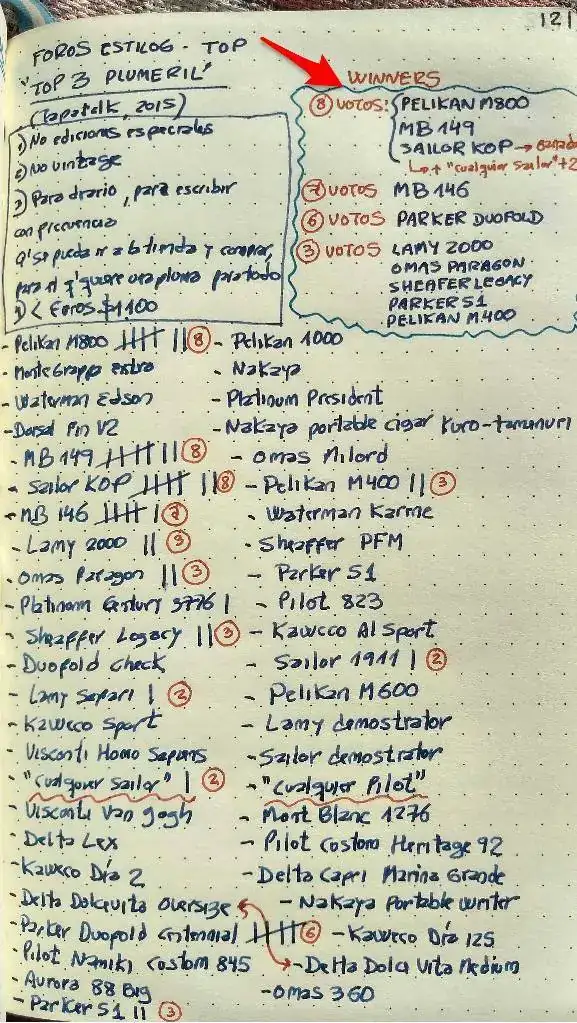 121
FOROS ESTILOG - TOP
"TOP 3 PLUMERIL"
(tapatalk, 2015)
1) No ediciones especiales
2) No vintage
3) Para diario, para escribir
con frecuencia
q' se pueda ir a la tienda y comprar,
para el q' quiere una pluma para todo
< Euros $1100
WINNERS
8 VOTOS: PELIKAN M800
MB 149
SAILOR KOP →
↳ + "cualquier Sailor" +2
7 VOTOS MB 146
6 VOTOS PARKER DUOFOLD
3 VOTOS LAMY 2000
OMAS PARAGON
SHEAFER LEGACY
PARKER 51
PELIKAN M400
- Pelikan M800 8
- Montegrappa extra
- Waterman Edson
- Dorsal Fin V2
- MB 149 8
- Sailor KOP 8
- MB 146 7
- Lamy 2000 || 3
- Omas Paragon || 3
- Platinum Century 3776 |
- Sheaffer Legacy || 3
- Duofold check
- Lamy Safari | 2
- Kaweco Sport
- Visconti Homo Sapiens
- "Cualquier Sailor" | 2
- Visconti Van Gogh
- Delta Lex
- Kaweco Dia 2
- Delta Dolcevita oversize
- Parker Duofold Centennial 6
- Pilot Namiki Custom 845
- Aurora 88 Big
- Parker 51 || 3
- Pelikan 1000
- Nakaya
- Platinum President
- Nakaya portable cigar Kuro-tamenuri
- Omas Milord
- Pelikan M400 || 3
- Waterman Karme
- Sheaffer PFM
- Parker 51
- Pilot 823
- Kaweco Al Sport
- Sailor 1911 | 2
- Pelikan M600
- Lamy demostrator
- Sailor demostrator
- "Cualquier Pilot"
- Mont Blanc 1276
- Pilot Custom Heritage 92
- Delta Capri Marina Grande
- Nakaya Portable writer
- Kaweco Dia 125
- Delta Dolce Vita Medium
- Omas 360